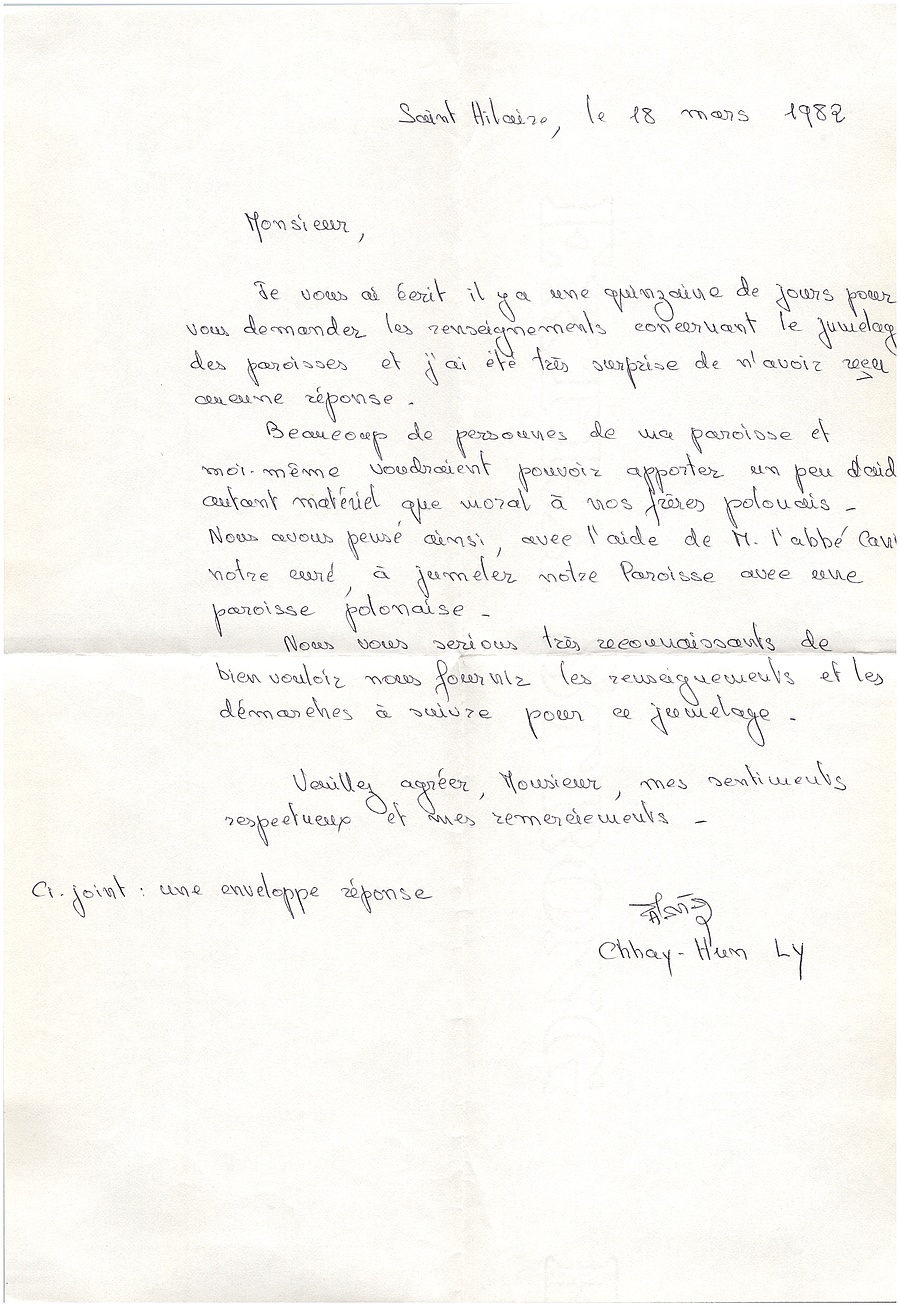 Saint Hilaire, le 18 mars 1982
Monsieur,
Je vous ai écrit il y a une quinzaine de jours pour
vous demander les renseignements concernant le jumelag
des paroisses et j'ai été très surprise de n'avoir reçu
aucune réponse.
Beaucoup de personnes de ma paroisse et
moi-même voudraient pouvoir apporter un peu d'aid
autant matériel que moral à nos frères polonais -
Nous avons pensé ainsi, avec l'aide de M. l'abbé
notre curé, à jumeler notre Paroisse avec une
paroisse polonaise -
Nous vous serions très reconnaissants de
bien vouloir nous fournir les renseignements et les
démarches à suivre pour ce jumelage.
Veuillez agréer, Monsieur, mes sentiments
respectueux et mes remerciements -
Ci-joint : une enveloppe réponse
Chhay-Hun LY